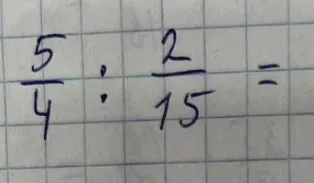 5/4 : 2/15 =